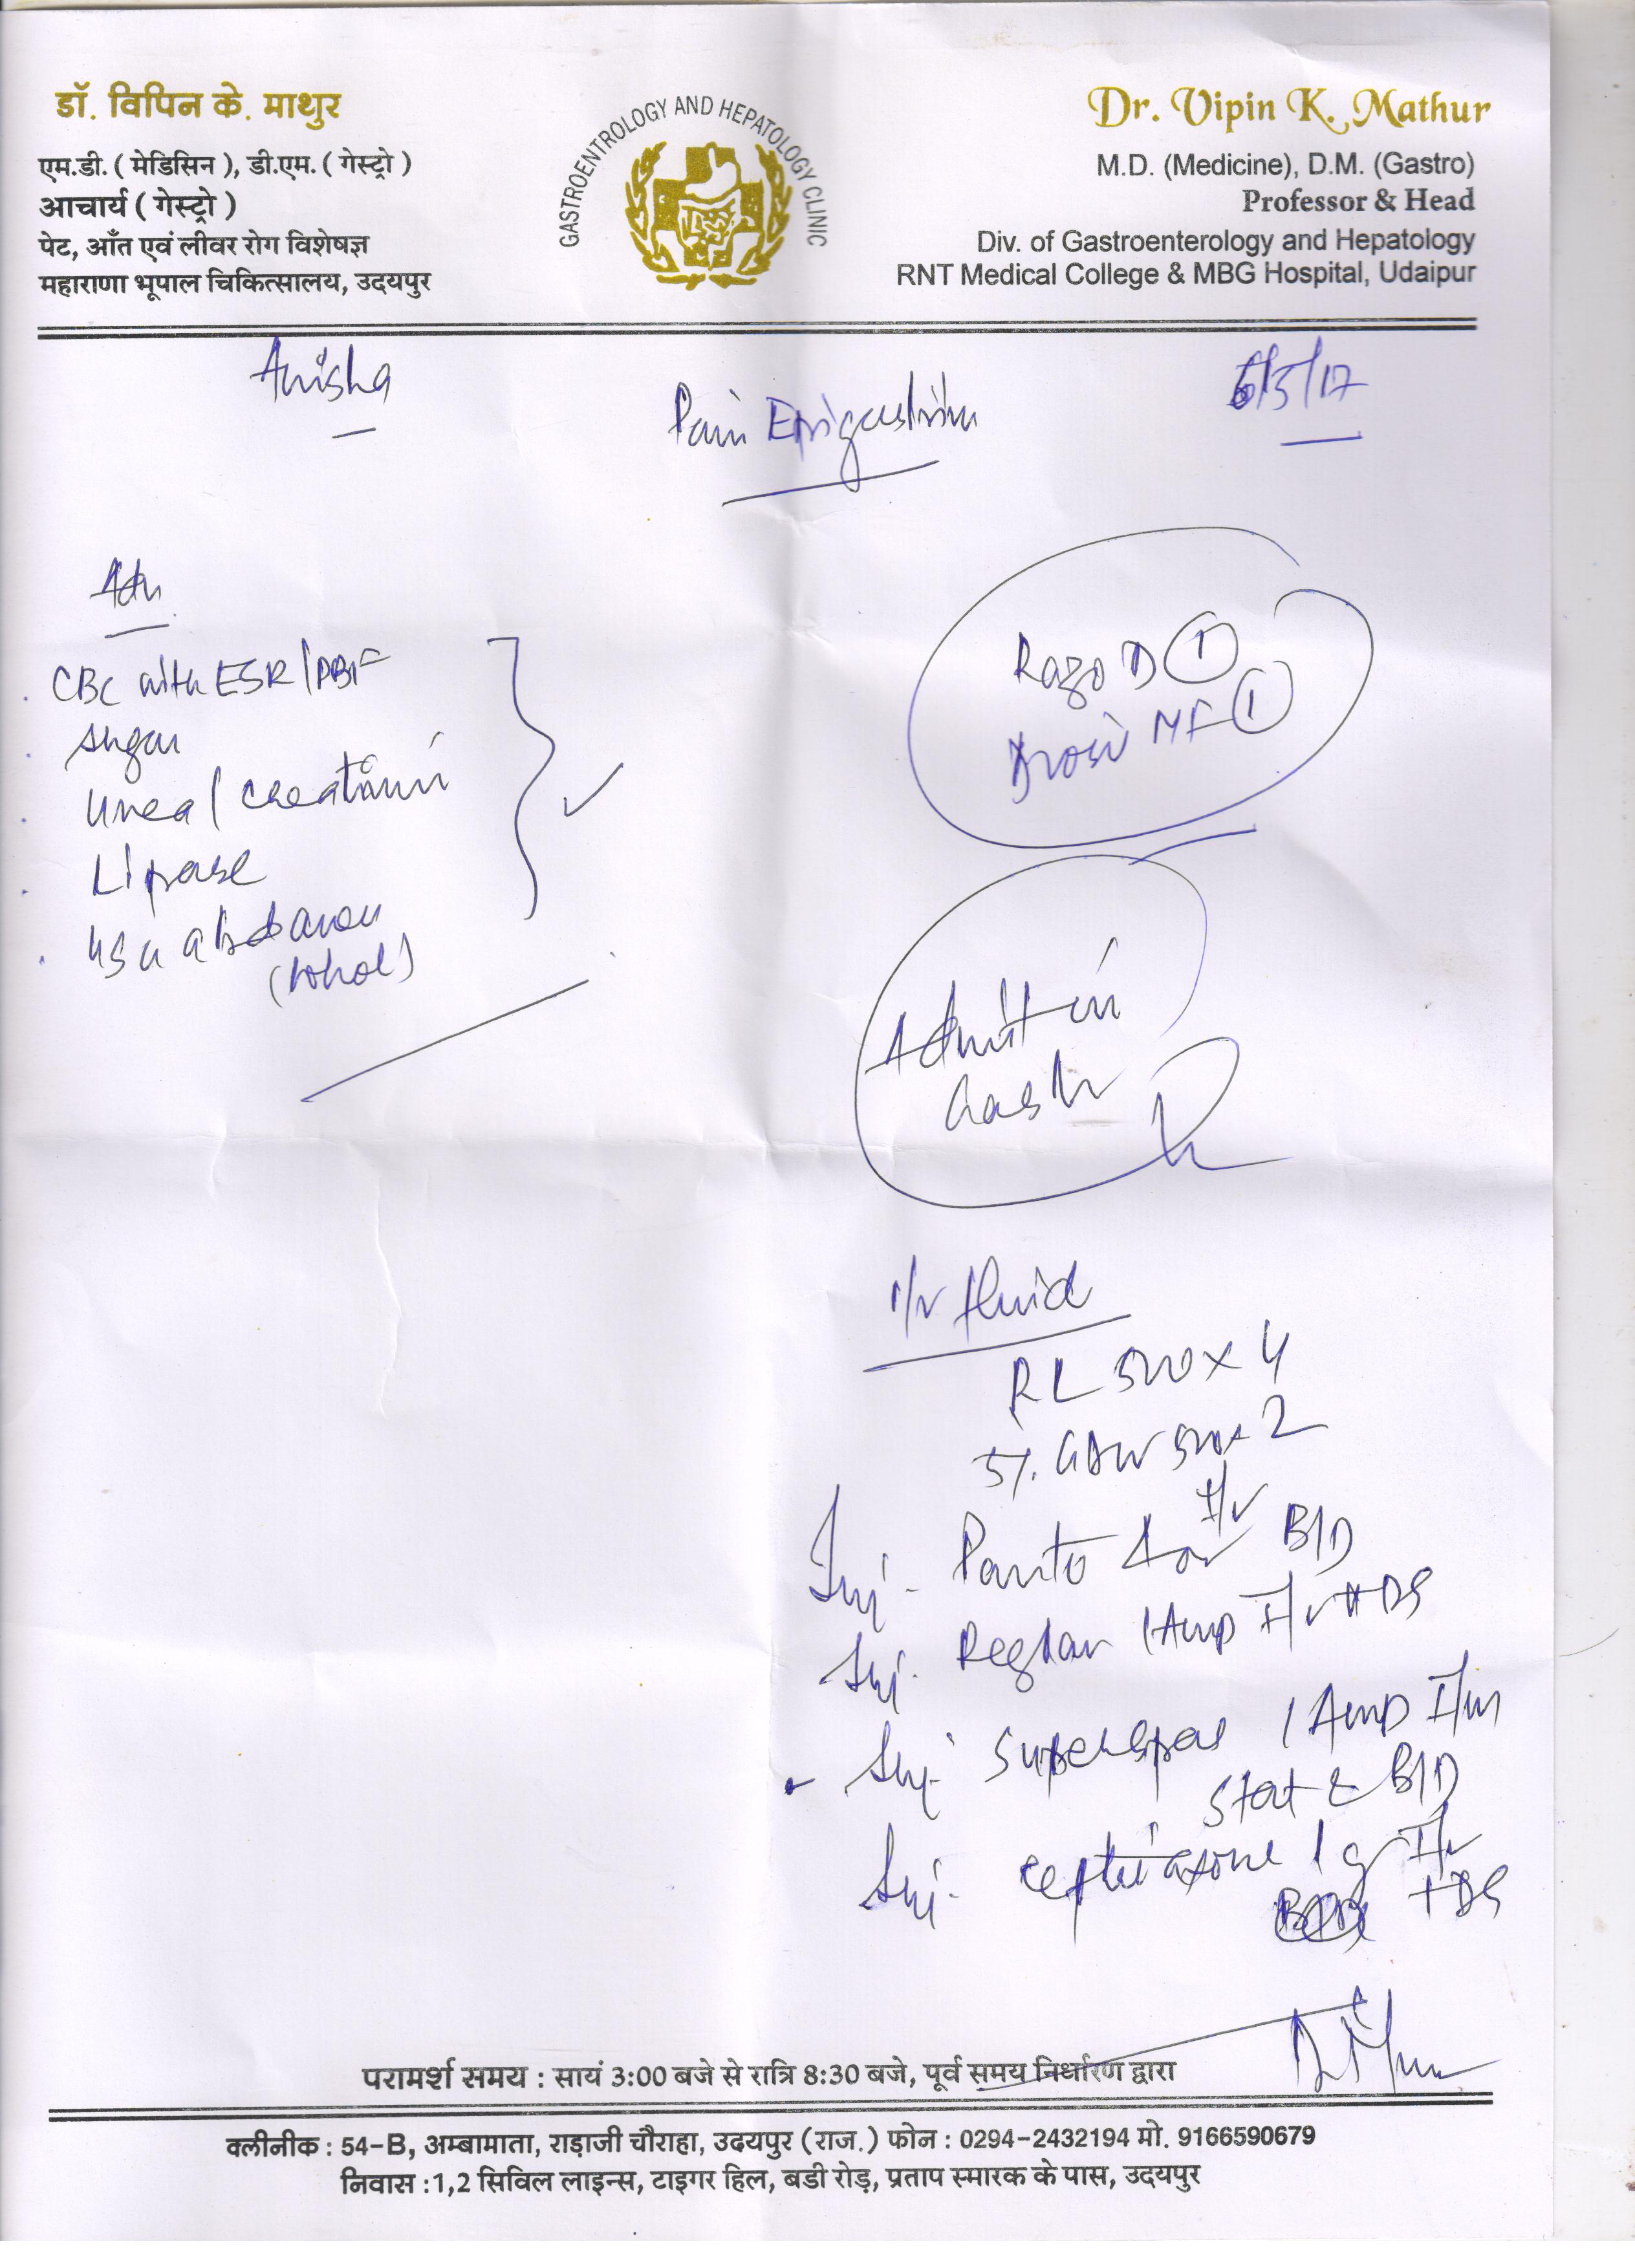 डॉ. विपिन के. माथुर
एम.डी. ( मेडिसिन ), डी.एम. ( गेस्ट्रो )
आचार्य ( गेस्ट्रो )
पेट, आँत एवं लीवर रोग विशेषज्ञ
महाराणा भूपाल चिकित्सालय, उदयपुर
GASTROENTROLOGY AND HEPATOLOGY CLINIC
Dr. Vipin K. Mathur
M.D. (Medicine), D.M. (Gastro)
Professor & Head
Div. of Gastroenterology and Hepatology
RNT Medical College & MBG Hospital, Udaipur
Anisha
Pain Epigastrium
6/5/17
Adv
CBC with ESR/PBF
Sugar
Urea/Creatinin
Lipase
USG abdomen
(whole)
Razo D 1
Drosi MF 1
Admit in
i/v fluid
RL 500 x 4
5%. GDW 500 x 2
Inj. Panto 40 I/v BID
Inj. Reglan 1 Amp I/v TDS
Inj. Superspas 1 Amp I/m
Stat & BID
Inj. Ceftriaxone 1 g I/v
TDS
परामर्श समय : सायं 3:00 बजे से रात्रि 8:30 बजे, पूर्व समय निर्धारण द्वारा
क्लीनीक : 54-B, अम्बामाता, राड़ाजी चौराहा, उदयपुर (राज.) फोन : 0294-2432194 मो. 9166590679
निवास :1,2 सिविल लाइन्स, टाइगर हिल, बडी रोड़, प्रताप स्मारक के पास, उदयपुर